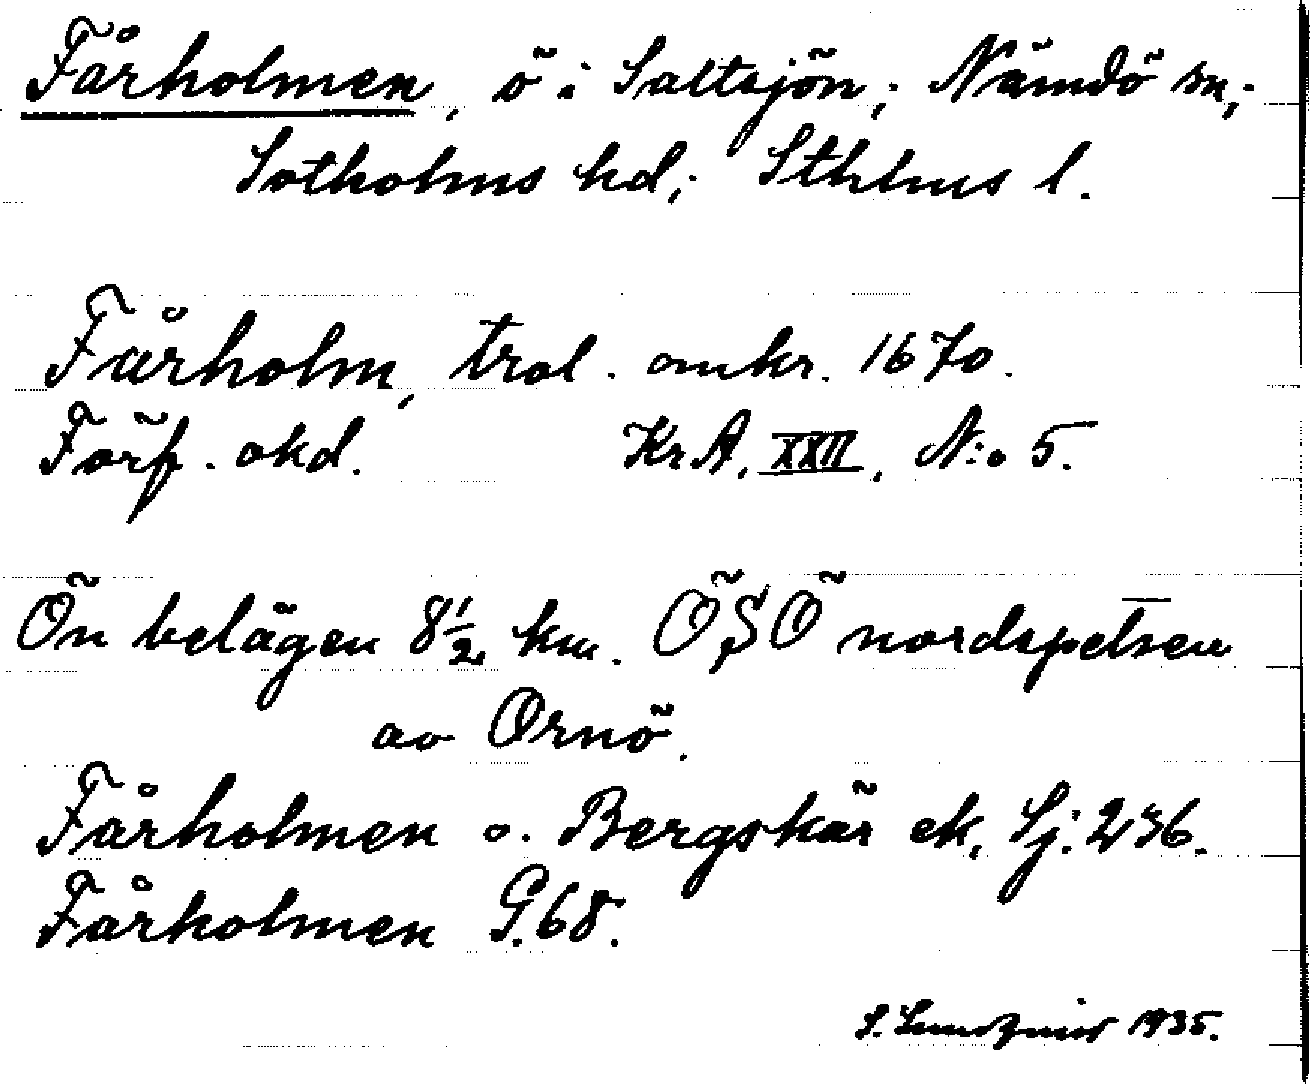 Fårholmen, ö i Saltsjön; Nämdö sn;
Sotholms hd; Sthlms l.
Fårholm, trol. omkr. 1670.
Förf. okd. Kr.A. XXII, N:o 5.
Ön belägen 8½ km. ÖSÖ nordspetsen
av Ornö.
Fårholmen o. Bergskär ek. Sj: 236.
Fårholmen G.68.
S. Lundqvist 1935.